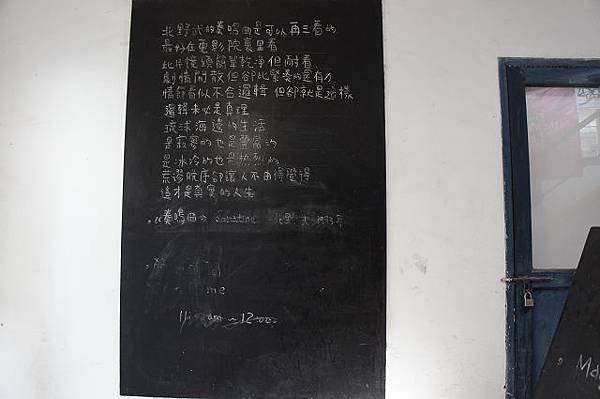 北野武的奏鳴曲是可以再三看的
最好在電影院裏看
此片鏡頭簡單乾淨但耐看
劇情閒散但卻比緊湊的還有力
情節看似不合邏輯 但卻就是這樣
邏輯未必是真理
琉球海邊的生活
是寂寞的也是豐富的
是冰冷的也是熱烈的
荒謬脫序卻讓人不由得覺得
這才是真實的人生
奏鳴曲 Sonatine 北野武
me
12:00
Ma